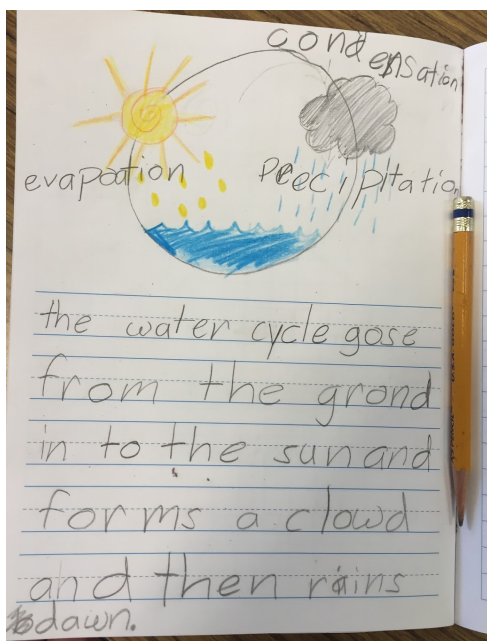 condensation
evapoation
Precipitatio
the water cycle gose
from the grond
in to the sun and
forms a clowd
and then rains
dawn.